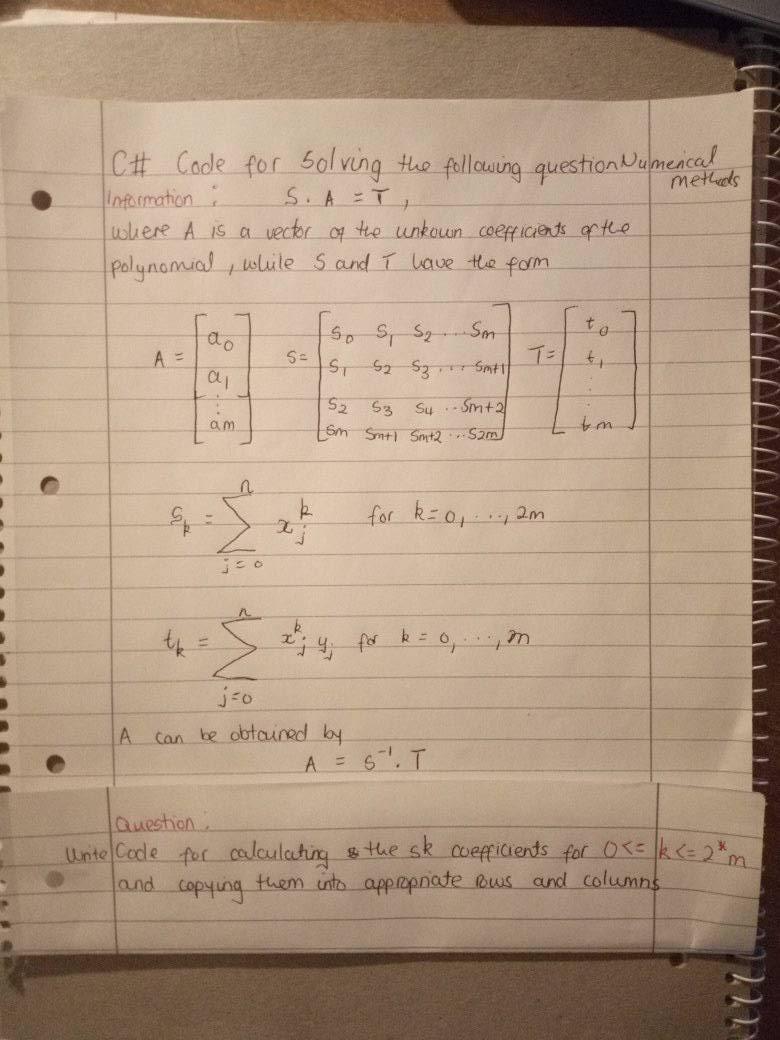 C# Code for Solving the following question Numerical
methods
Information : S . A = T ,
where A is a vector of the unkown coefficients of the
polynomial , while S and T have the form
A = [a₀ a₁ ⋮ am] S = [S₀ S₁ S₂ ... Sm
S₁ S₂ S₃ ... Sm+1
S₂ S₃ S₄ ... Sm+2
Sm Sm+1 Sm+2 ... S2m] T = [t₀ t₁ ⋮ tm]
Sₖ = ∑ⱼ₌₀ⁿ xⱼᵏ for k = 0, ..., 2m
tₖ = ∑ⱼ₌₀ⁿ xⱼᵏ yⱼ for k = 0, ..., m
A can be obtained by
A = S⁻¹ . T
Question :
Write Code for calculating the sk coefficients for 0<= k<=2*m
and copying them into appropriate rows and columns